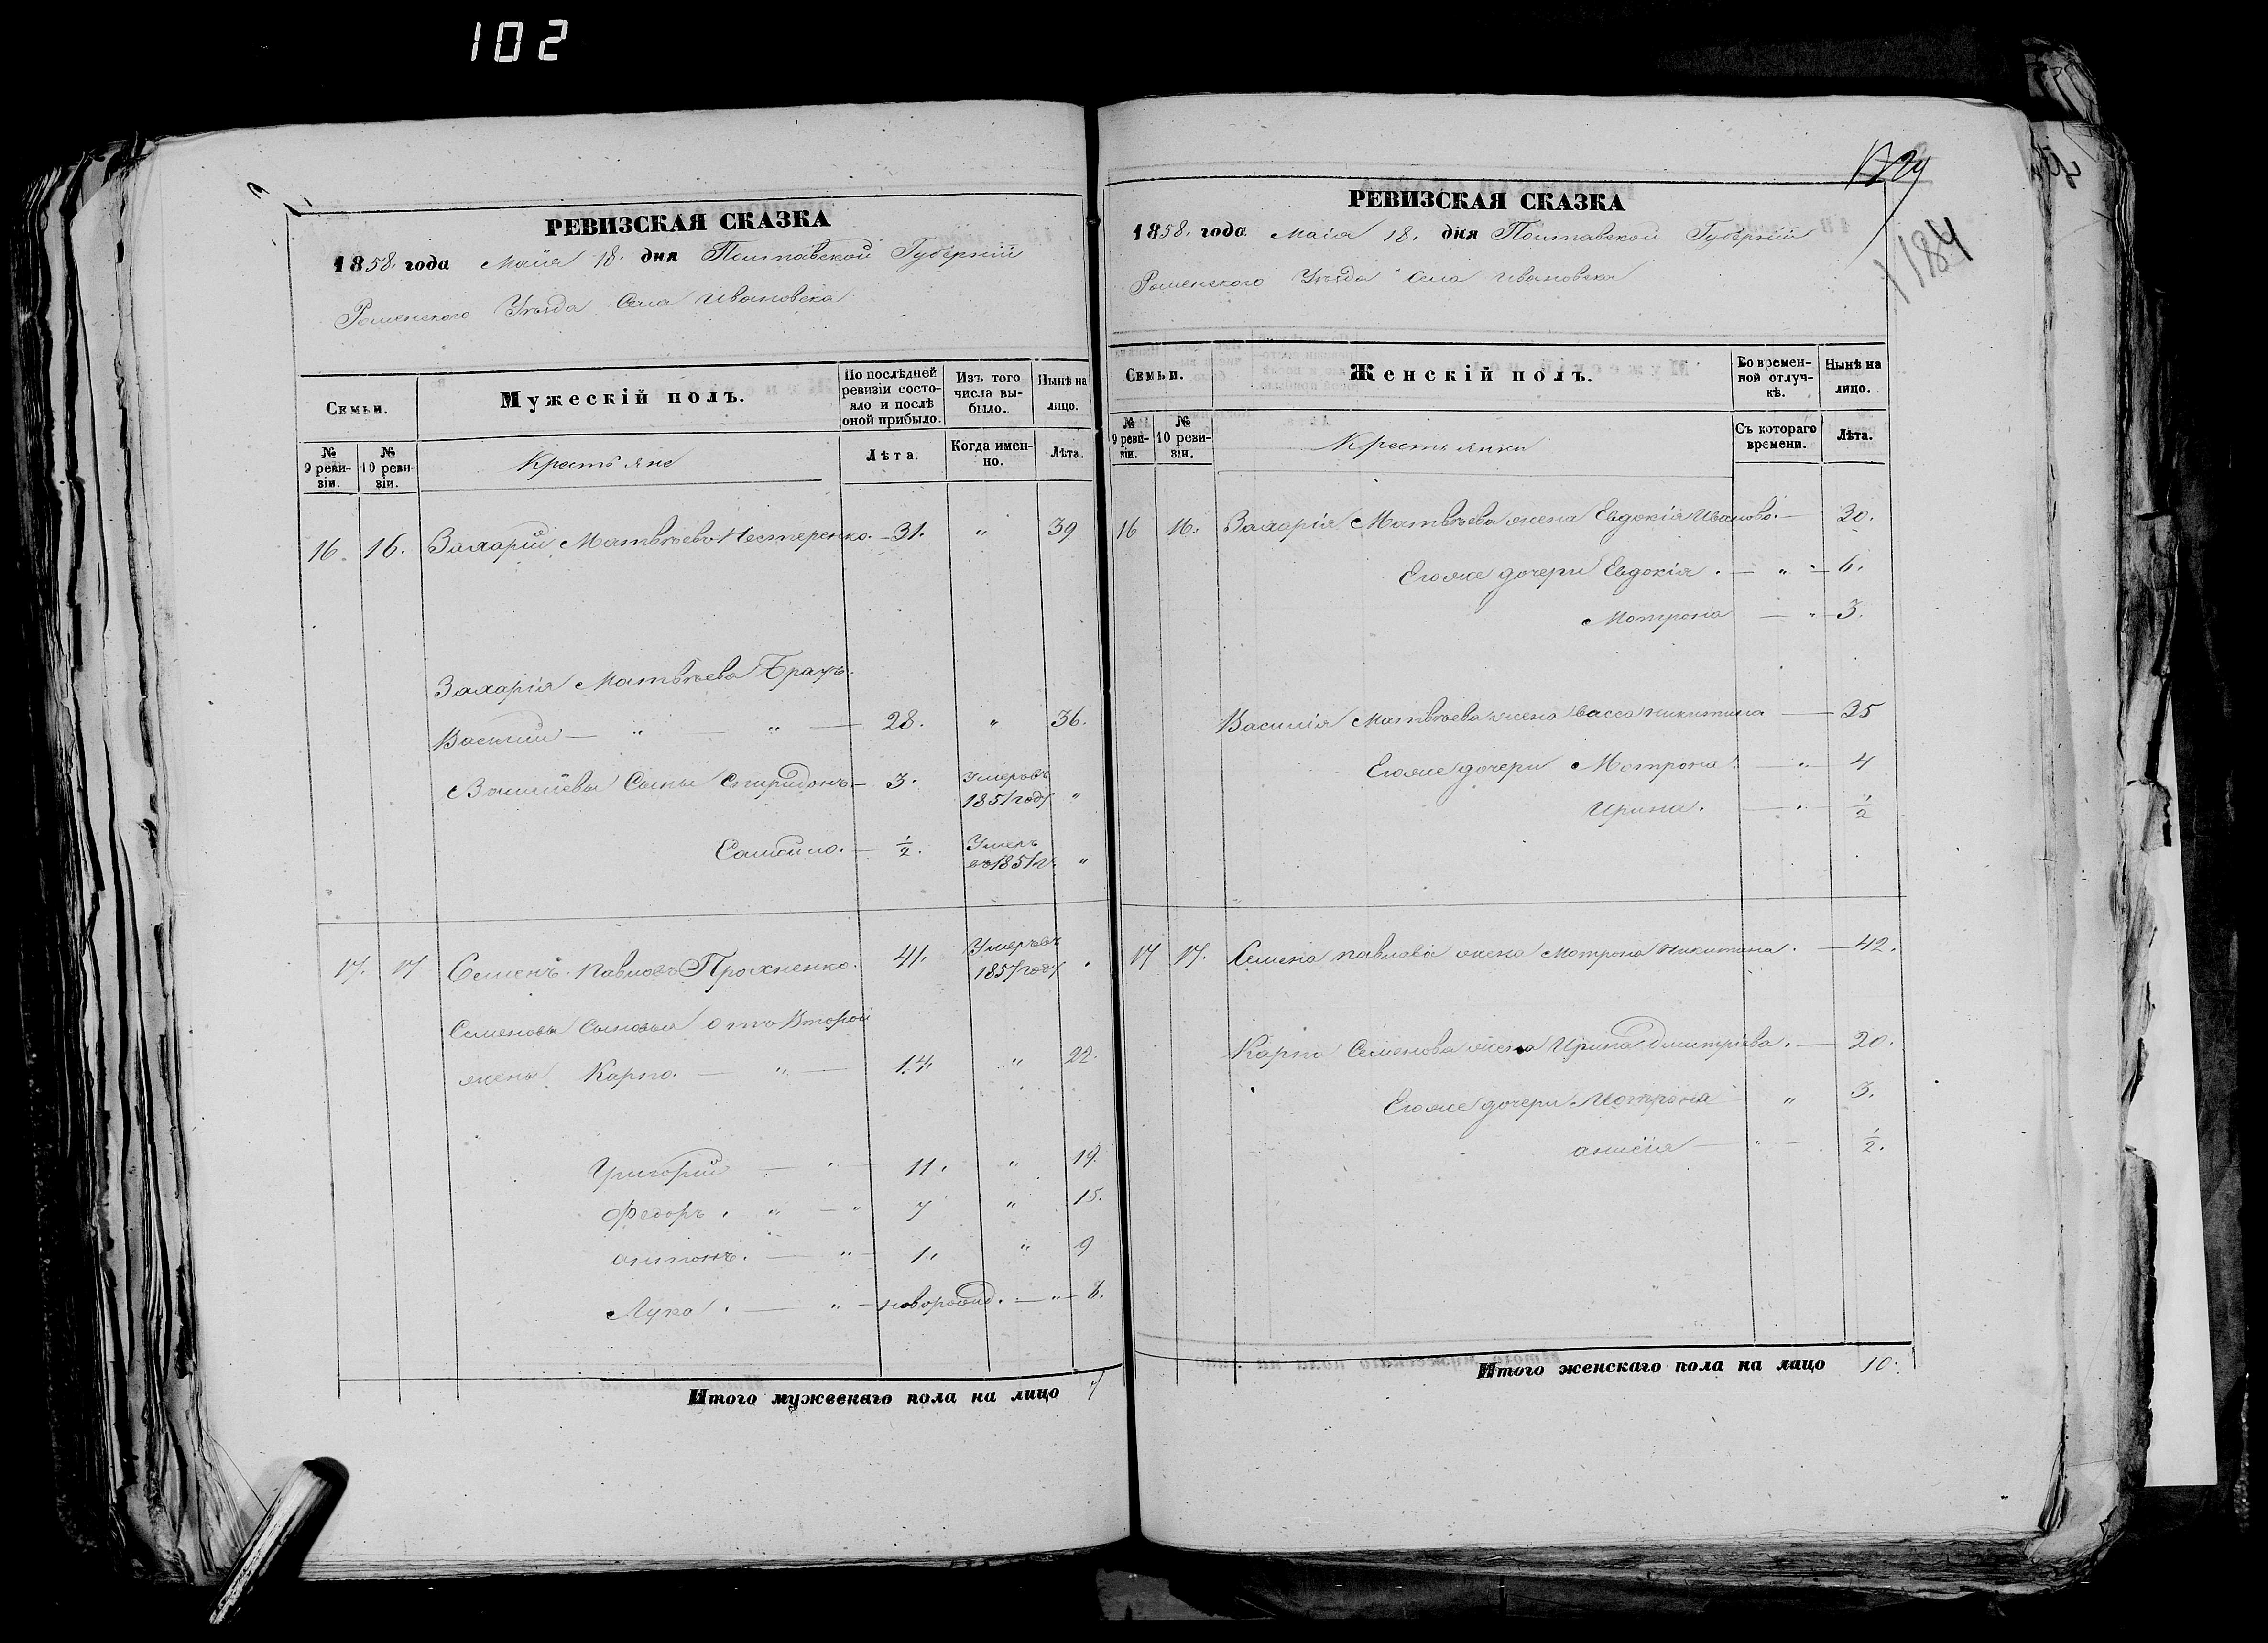 102
РЕВИЗСКАЯ СКАЗКА
1858. года Маія 18. дня Полтавской Губерніи
Роменского Уѣзда Села Ивановска
Семьи.
Мужескій полъ.
По послѣдней ревизіи состояло и послѣ оной прибыло.
Изъ того числа выбыло.
Нынѣ на лицо.
№ 9 ревизіи.
№ 10 ревизіи.
Крестьяне
Лѣта.
Когда именно.
Лѣта.
16. 16. Захарій Матвѣевъ Нестеренко. — 31. " 39
Захарія Матвѣева Братъ.
Василий — " — " — 28. " 36.
Василіевы Сыны Спиридонъ — 3. Умеръ въ 1851 году "
Самойло. — ½. Умеръ въ 1851 г. "
17. 17. Семенъ Павловъ Прохненко. 41. Умеръ въ 1857 году
Семеновы Сыновья отъ Второй
жены Карпо. — " — 14 " 22.
Григорий — " 11. " 19.
Федоръ. " — " 7 " 15.
Антонъ. — " 1. " 9
Лука. — " — новорожд. — " — 8.
Итого мужескаго пола на лицо 7
184
РЕВИЗСКАЯ СКАЗКА
1858. года Маія 18. дня Полтавской Губерніи
Роменского Уѣзда Села Ивановска
Семьи.
Женскій полъ.
Во временной отлучкѣ.
Нынѣ на лицо.
№ 9 ревизіи.
№ 10 ревизіи.
Крестьянки
Съ котораго времени.
Лѣта.
16 16. Захарія Матвѣева жена Евдокія Иванова. — 30.
Его же дочери Евдокія. — " — 6.
Мотрона — " — 3.
Василія Матвѣева жена Васса Никитина — 35
Его же дочери Мотрона. — " — 4
Ирина. — " — ½
17 17. Семена Павлова жена Мотрона Никитина. — 42.
Карпа Семенова жена Ирина Дмитріева. — 20.
Его же дочери Мотрона " 3.
Анисія — " — ½.
Итого женскаго пола на лицо 10.